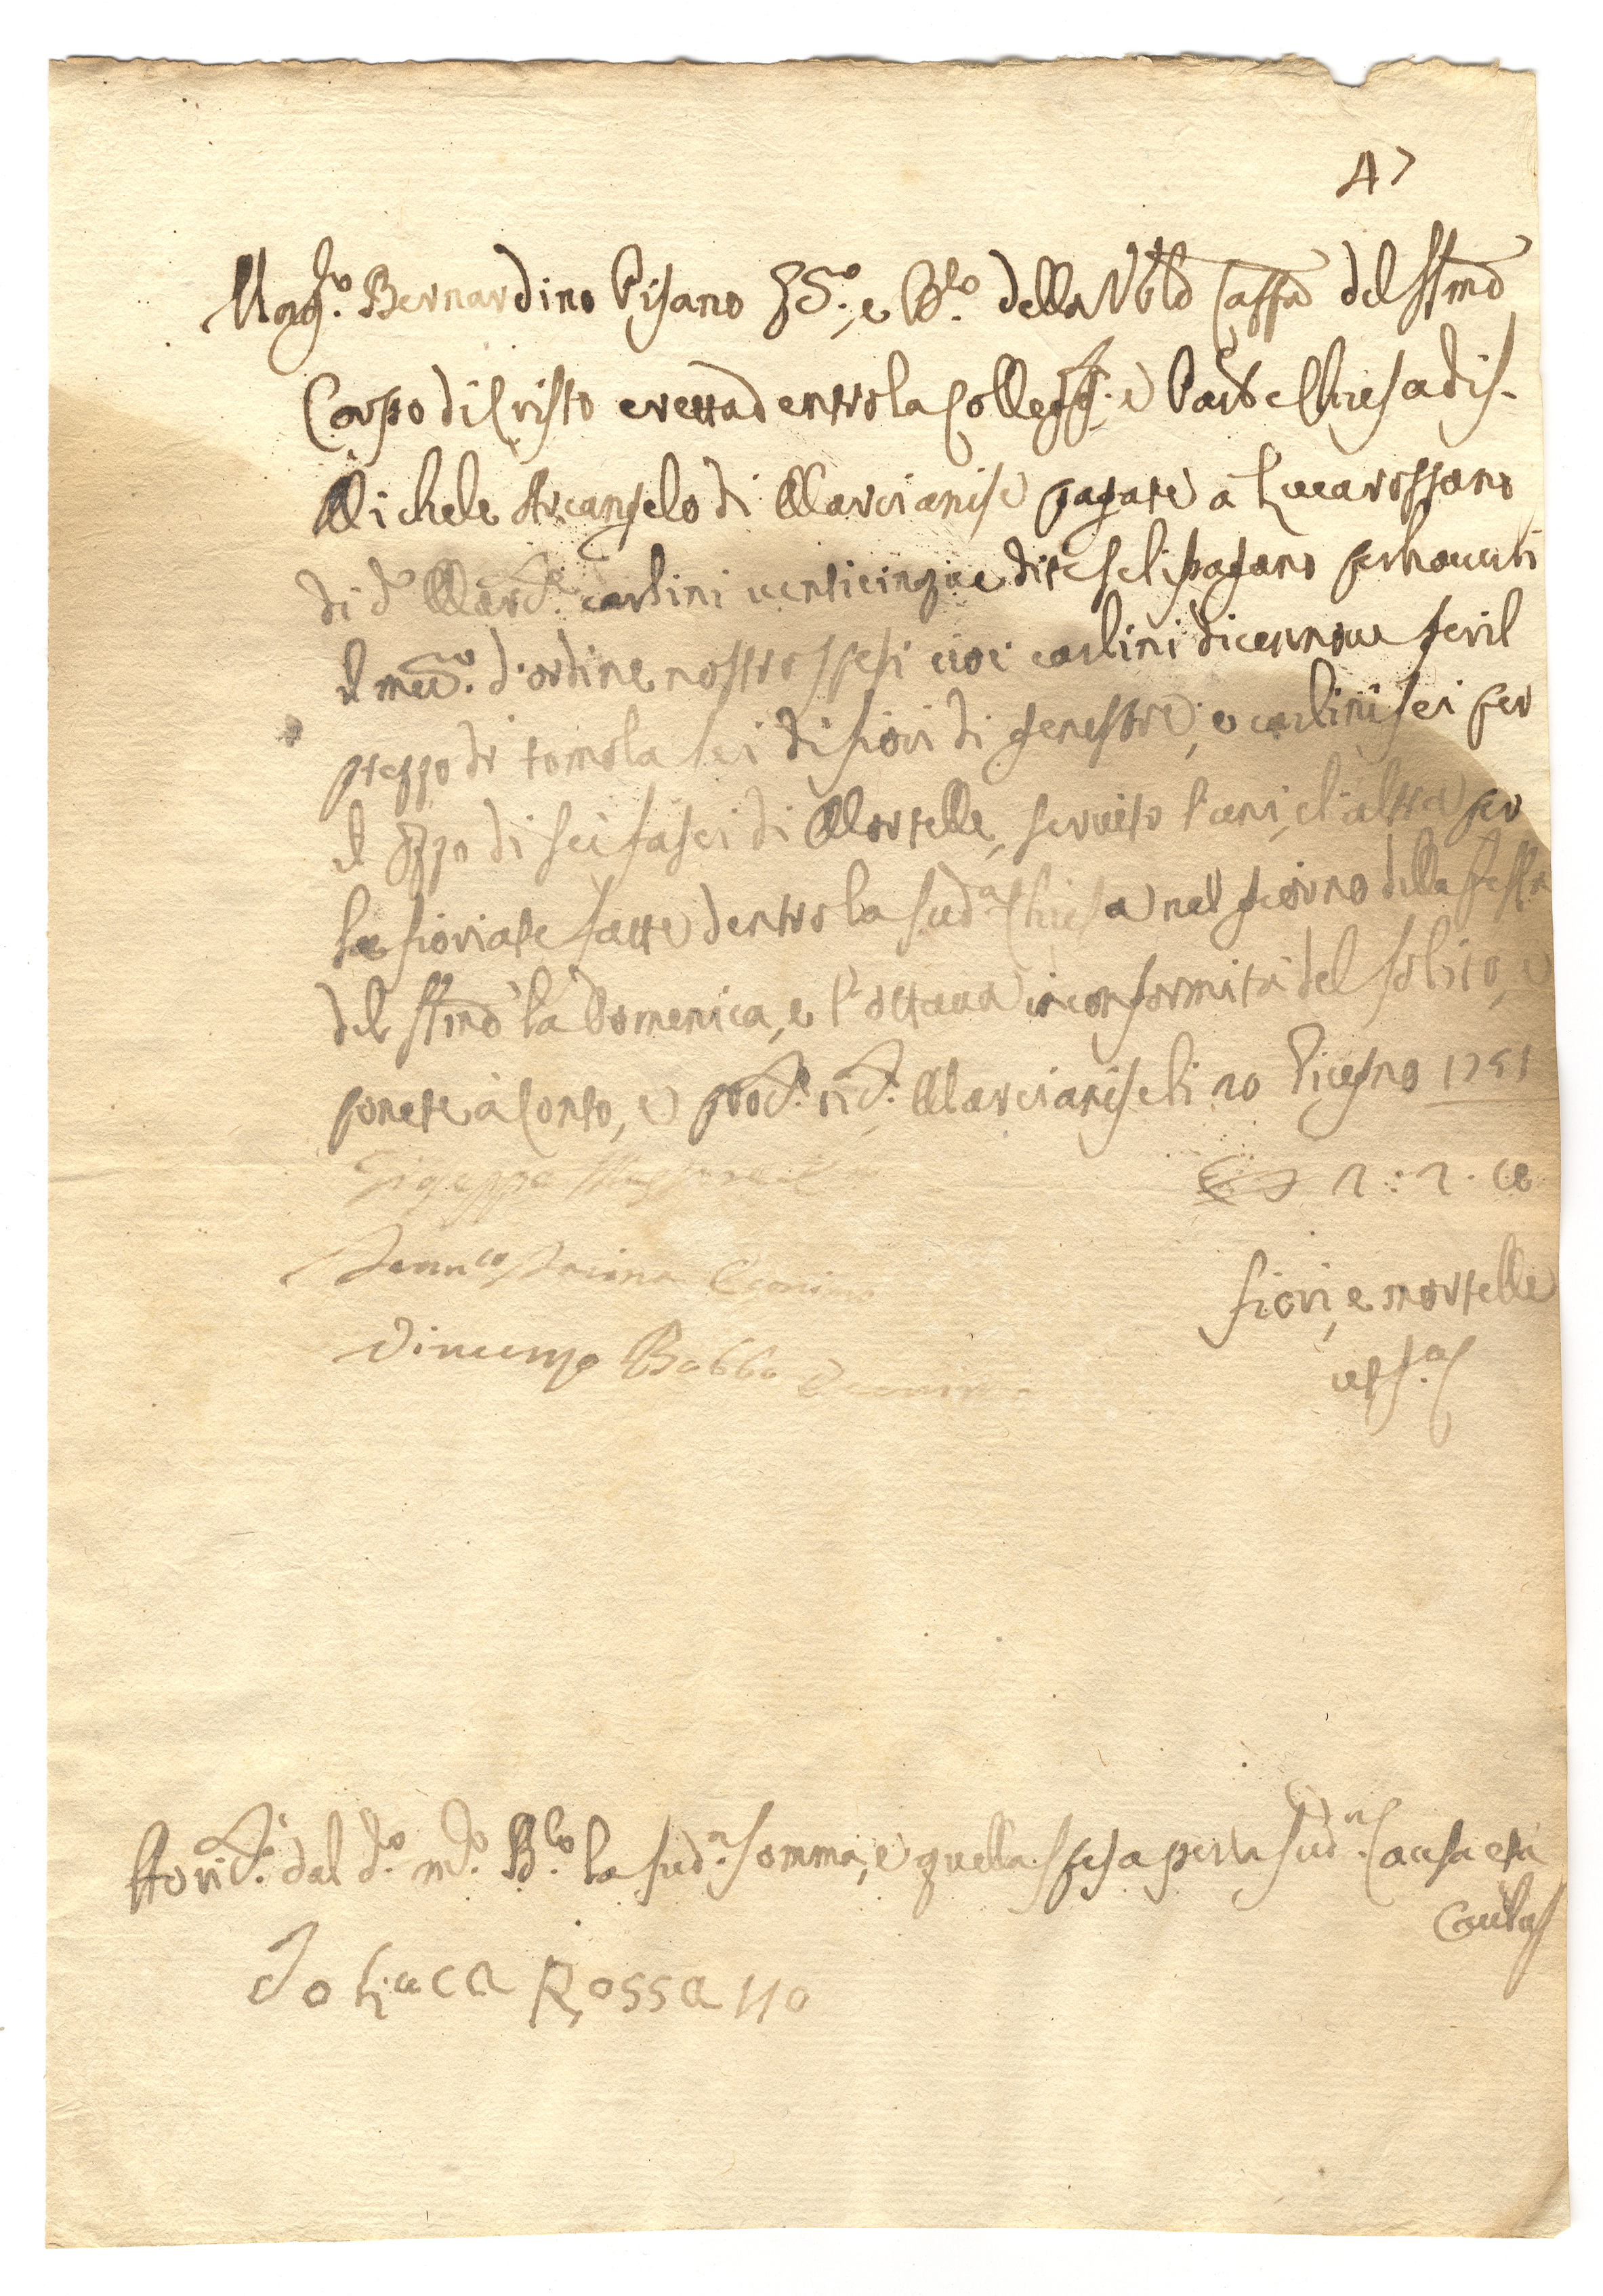 47
Mag.co Bernardino Pisano e della Ven.le Cappa del SSmo
Corpo di Cristo eretta dentro la Colleg. e Par.le Chiesa di S.
Michele Arcangelo di Marcianise pagate a Luca rossano
di d.o Marc.e carlini venticinque dite seli pagano per haverli
il med.o d'ordine nostro spesi cioè carlini dicennove per il
prezzo di tomola sei di fiori di genestre, e carlini sei per
il pzzo di sei fasci di Mortelle, servito l'uni, e l'altra per
le fioriate fatte dentro la sud.a Chiesa nel giorno della festa
del SSmo la Domenica, e l'ottava in conformità del solito, e
ponete à Conto, e Marcianise li 20 Giugno 1751
Giuseppe
2 : 2 . 10
Economo
fiori, e mortelle
Vincenzo Babbo Economo
ut s.a
Ho ric.to dal d.o m.co B.lo la sud.a somma, e quella spesa per la sud.a Causa
Io Luca Rossano